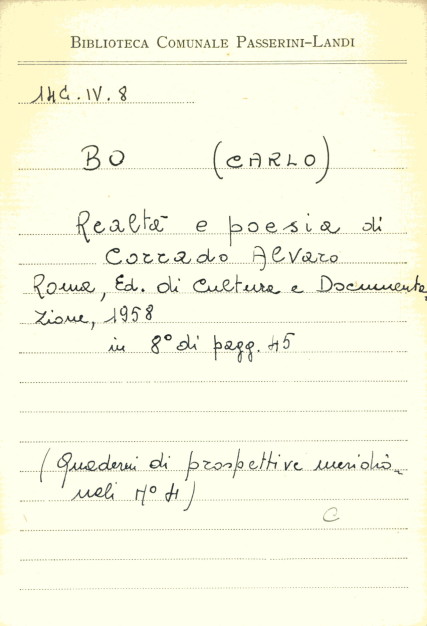 BIBLIOTECA COMUNALE PASSERINI-LANDI
14G.IV.8
BO (CARLO)
Realtà e poesia di
Corrado Alvaro
Roma, Ed. di Cultura e Documenta-
zione, 1958
in 8° di pagg. 45
(Quaderni di prospettive meridio-
nali N° 4)
C